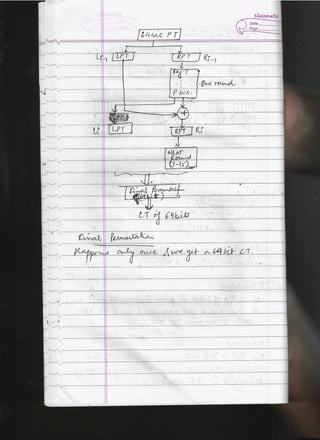 classmate
Date
Page
64 bit PT
Li-1 LPT RPT Ri-1
Key T
One round
P-box
+
Li LPT RPT Ri
Next Round (1-15)
Final Permutation
CT of 64 bits
Final Permutation
Happens only once & we get a 64 bit CT.